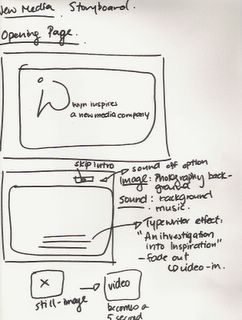 New Media Storyboard.
Opening Page.
Whom inspires
a new media company
skip intro
sound off option
Image: Photography back-
ground
Sound: background
music.
Typewriter effect:
"An investigation
into Inspiration"
- Fade out
video-in.
X
video
still-image
becomes a
5 second